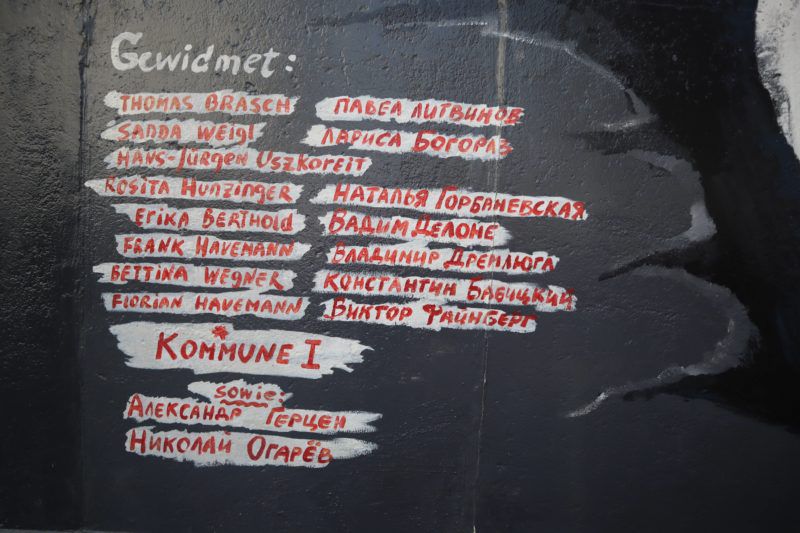 Gewidmet:
THOMAS BRASCH
SANDA WEIGL
HANS-JÜRGEN USZKOREIT
ROSITA HUNZINGER
ERIKA BERTHOLD
FRANK HAVEMANN
BETTINA WEGNER
FLORIAN HAVEMANN
ПАВЕЛ ЛИТВИНОВ
ЛАРИСА БОГОРАЗ
НАТАЛЬЯ ГОРБАНЕВСКАЯ
ВАДИМ ДЕЛОНЕ
ВЛАДИМИР ДРЕМЛЮГА
КОНСТАНТИН БАБИЦКИЙ
ВИКТОР ФАЙНБЕРГ
KOMMUNE I
sowie:
АЛЕКСАНДР ГЕРЦЕН
НИКОЛАЙ ОГАРЁВ